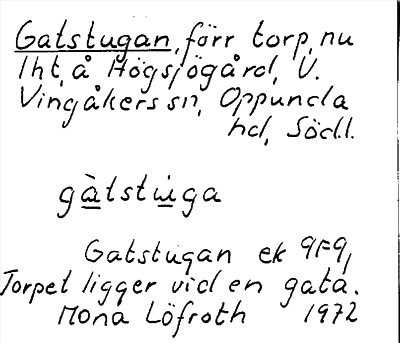 Gatstugan, förr torp, nu
lht, å Högsjögård, V.
Vingåkers sn, Oppunda
hd, Södl.
gàtstùga
Gatstugan ek 9F9j
Torpet ligger vid en gata.
Mona Löfroth 1972